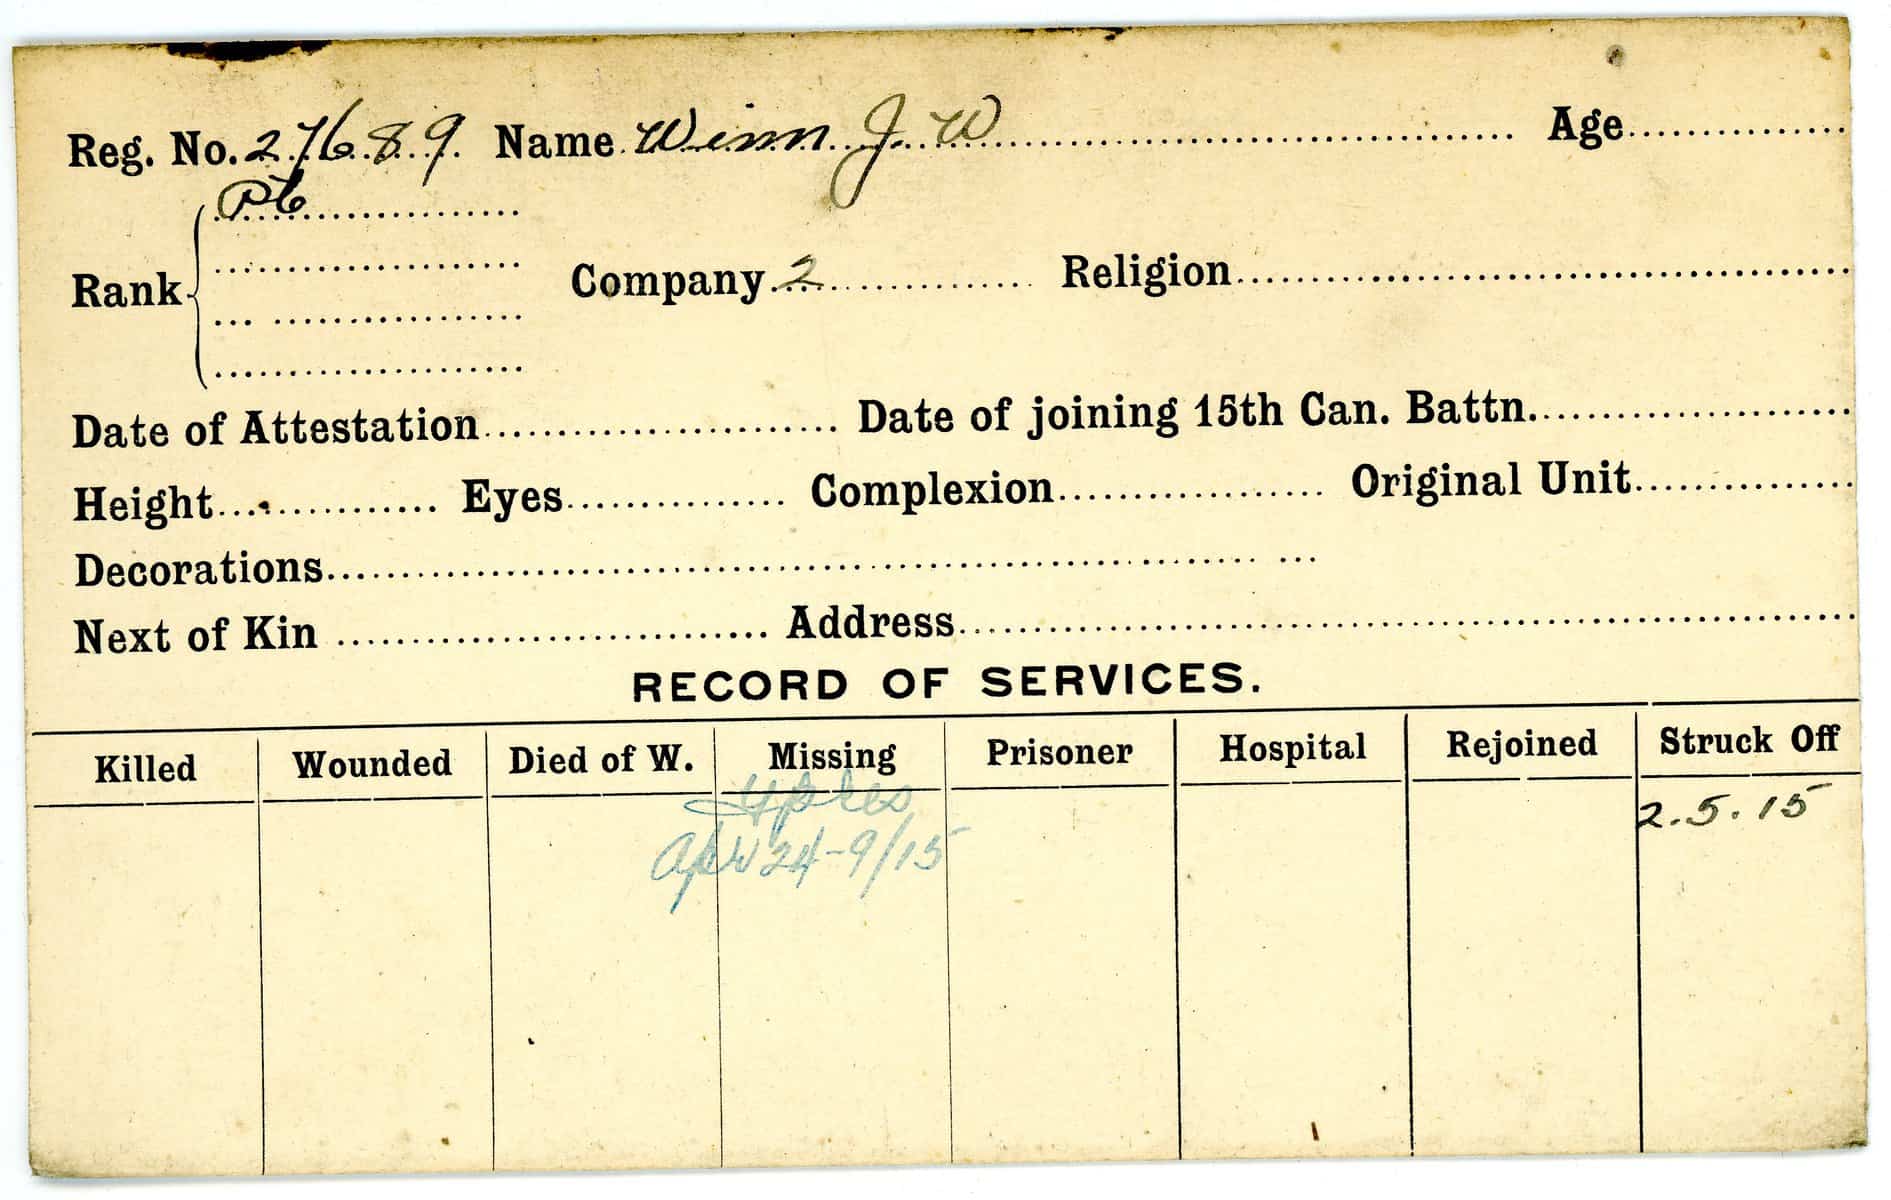 Reg. No. 27689 Name Winn J. W Age
Pte
Rank Company 2 Religion
Date of Attestation Date of joining 15th Can. Battn.
Height Eyes Complexion Original Unit
Decorations
Next of Kin Address
RECORD OF SERVICES.
Killed Wounded Died of W. Missing Prisoner Hospital Rejoined Struck Off
Ypres 2.5.15
Apr 24-9/15